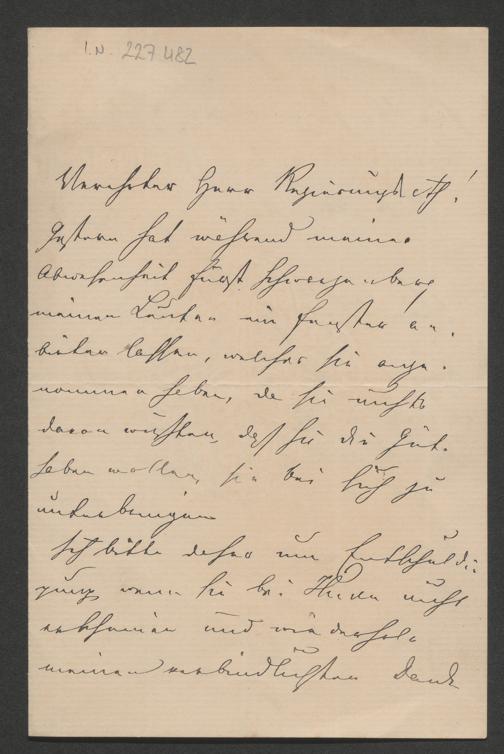 I.N. 227.482
Verehrter Herr Regierungsrath!
Gestern hat während meiner
Abwesenheit Fürst Schwarzenberg
meinen Leuten ein Fenster an-
bieten lassen, welches sie ange-
nommen haben, da sie nichts
davon wußten, daß Sie die Güte
haben wollten, sie bei sich zu
unterbringen
Ich bitte daher um Entschuldi-
gung wenn sie bei Ihnen nicht
erscheinen und wiederhole
meinen verbindlichsten Dank